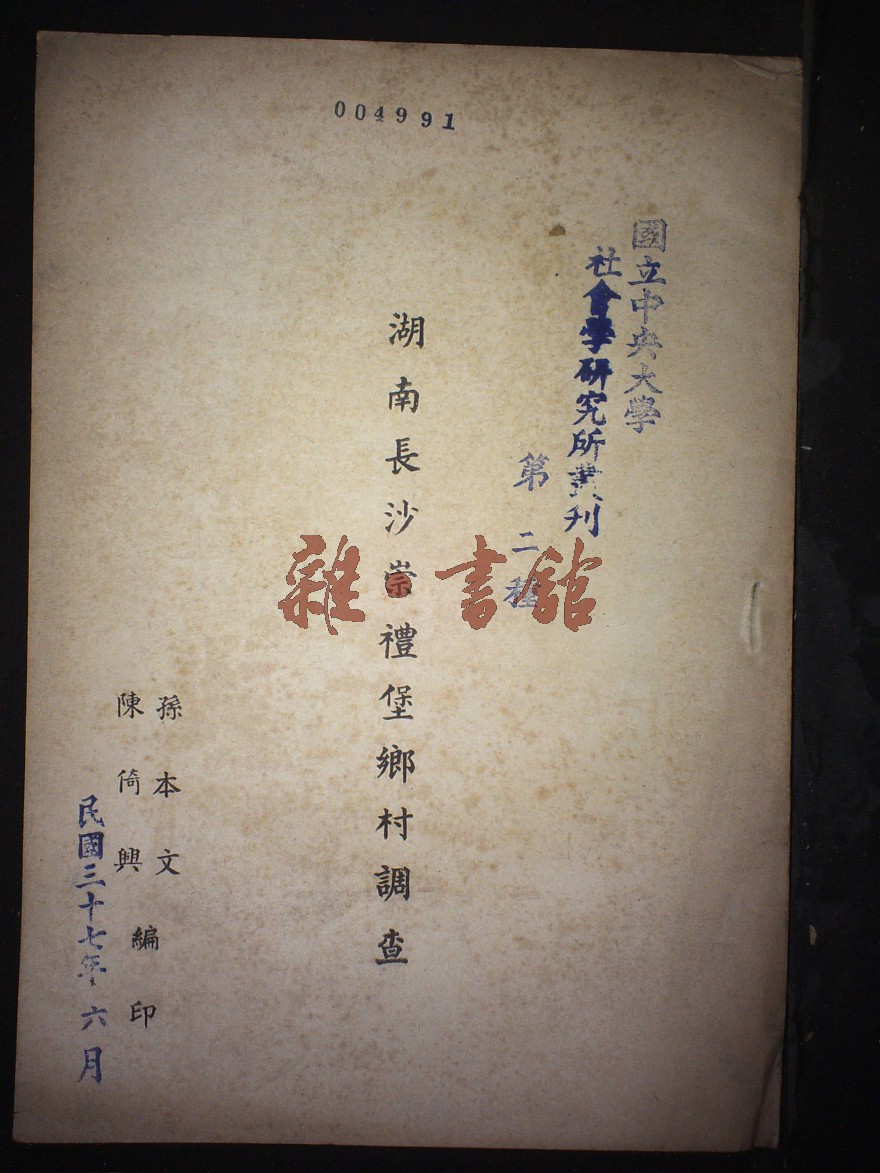 004991
國立中央大學
社會學研究所叢刊
第二種
湖南長沙崇禮堡鄉村調查
孫本文
陳倚興
編印
民國三十七年六月
雜書館